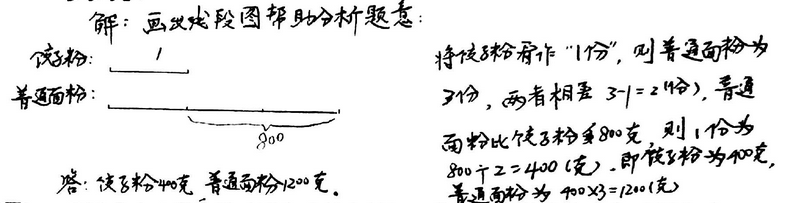 解：画出线段图帮助分析题意：
饺子粉：
1
普通面粉：
800
答：饺子粉400克 普通面粉1200克。
将饺子粉看作“1份”，则普通面粉为
3份，两者相差 3-1=2(份)，普通
面粉比饺子粉多800克 则1份为
800÷2=400(克)．即饺子粉为400克，
普通面粉为 400×3=1200(克)